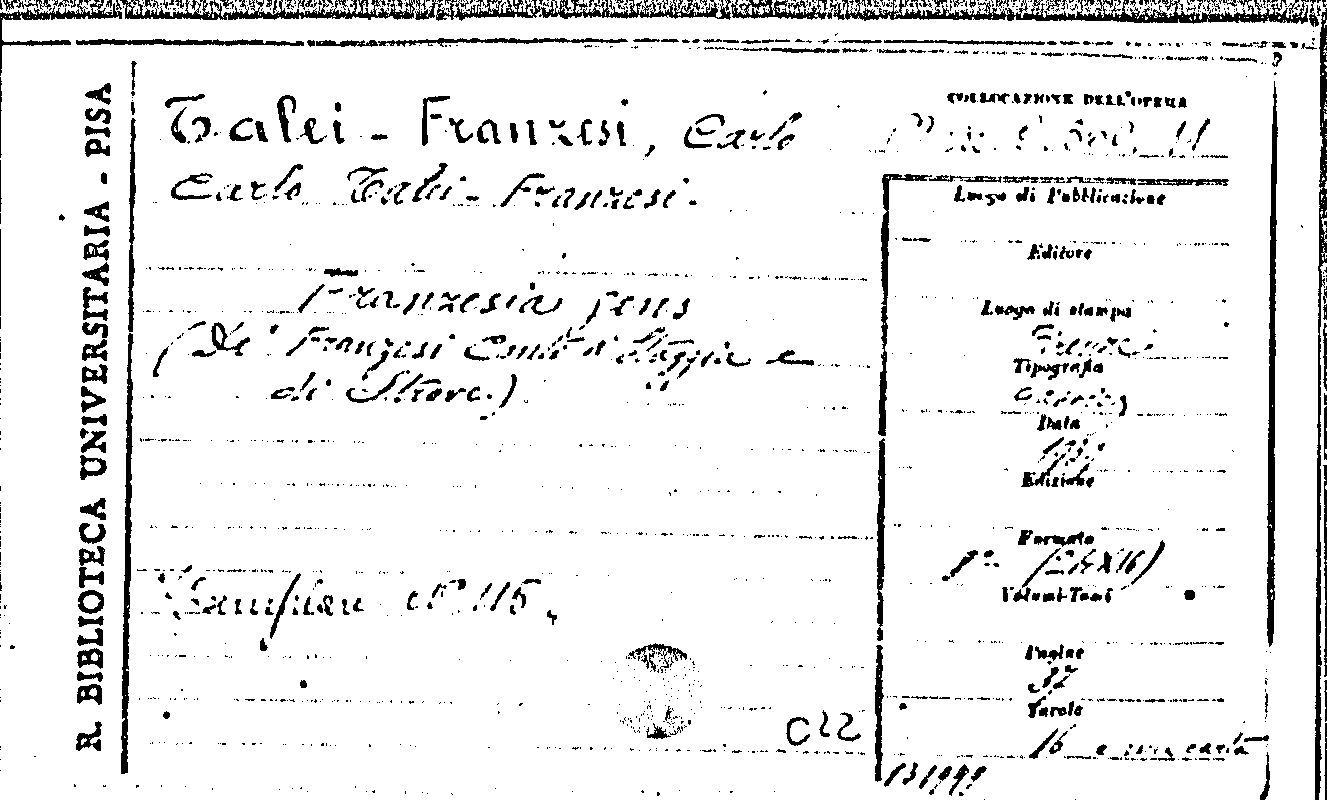 R. BIBLIOTECA UNIVERSITARIA - PISA
Talei - Franzesi, Carlo
Carlo Talei - Franzesi.
Franzesia gens
(De' Franzesi Conti di Staggia e
di Strove.)
Esemplare N° 115.
C22
COLLOCAZIONE DELL'OPERA
Luogo di Pubblicazione
Editore
Luogo di stampa
Firenze
Tipografia
Data
Edizione
Formato
8° (24X16)
Volumi-Tomi
Pagine
37
Tavole
16 e una carta
131999